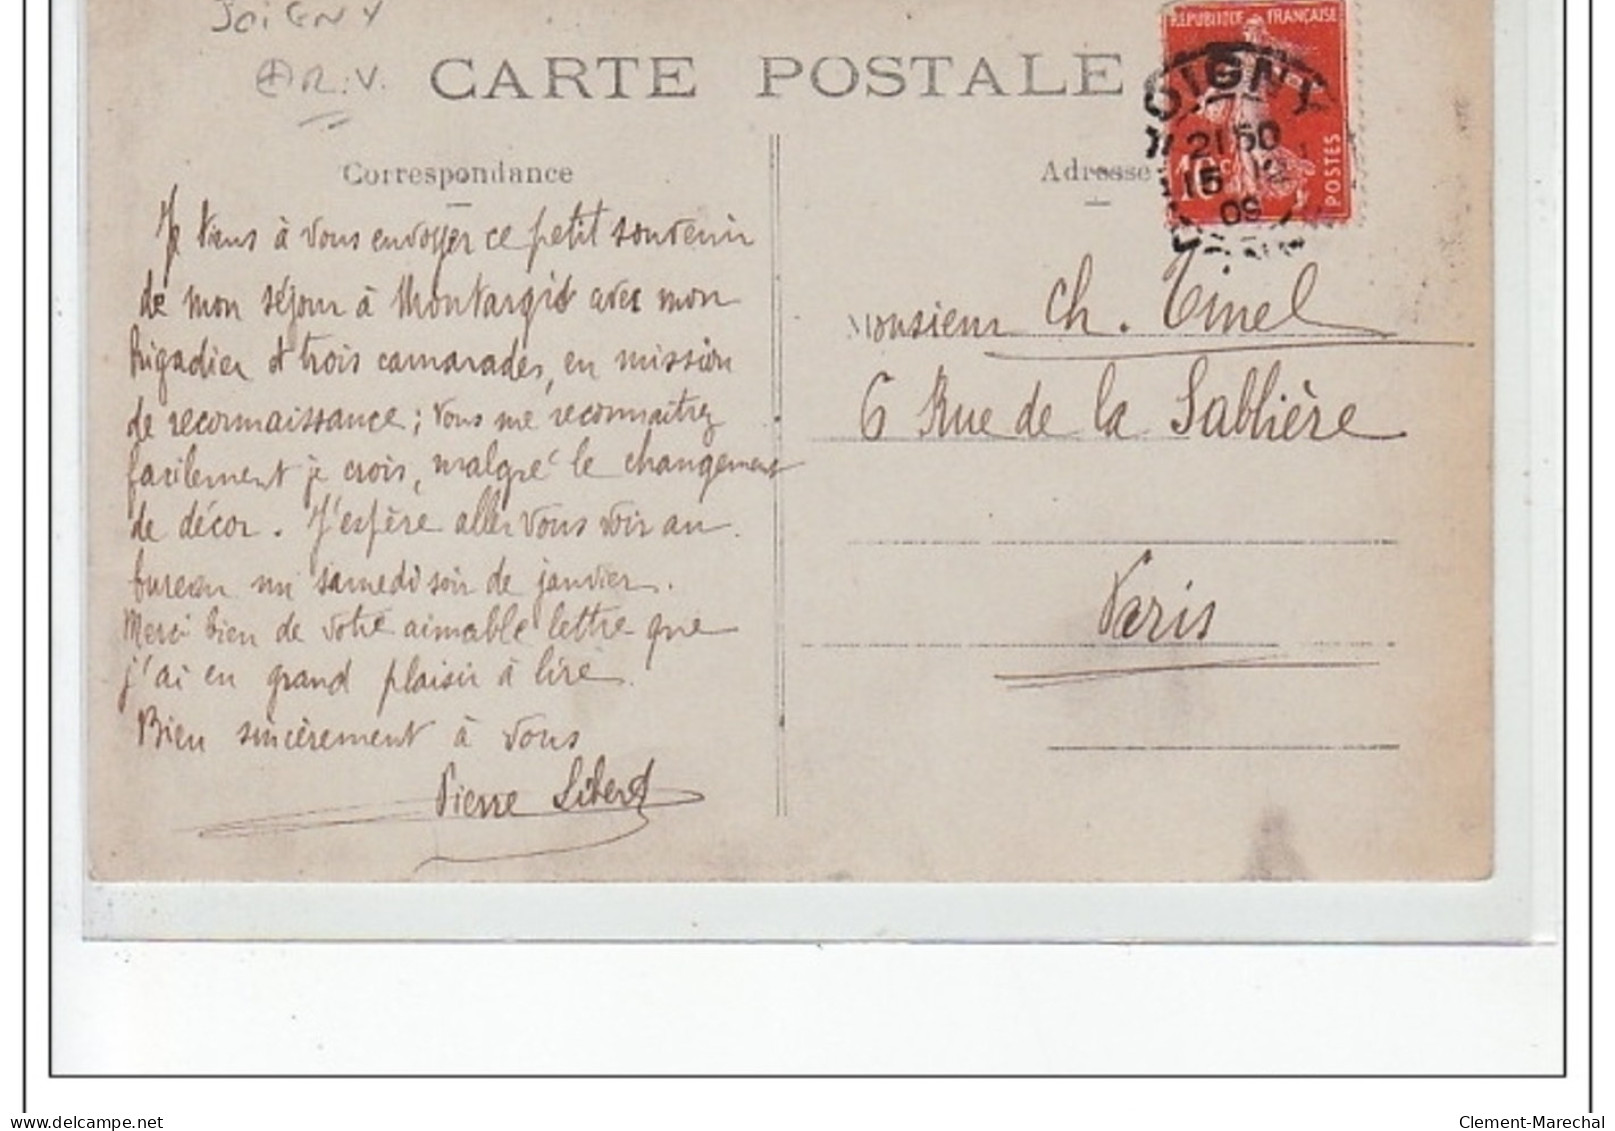 JOIGNY
R.V.
CARTE POSTALE
REPUBLIQUE FRANÇAISE
OIGNY
21 50
15 12
09
10 c
POSTES
Correspondance
Adresse
Je viens à vous envoyer ce petit souvenir
de mon séjour à Montargis avec mon
brigadier et trois camarades, en mission
de reconnaissance ; vous me reconnaîtrez
facilement je crois, malgré le changement
de décor. J'espère aller vous voir au
bureau un samedi soir de janvier.
Merci bien de votre aimable lettre que
j'ai eu grand plaisir à lire.
Bien sincèrement à vous
Pierre
Monsieur Ch. Tinel
6 Rue de la Sablière
Paris
delcampe.net
Clement-Marechal